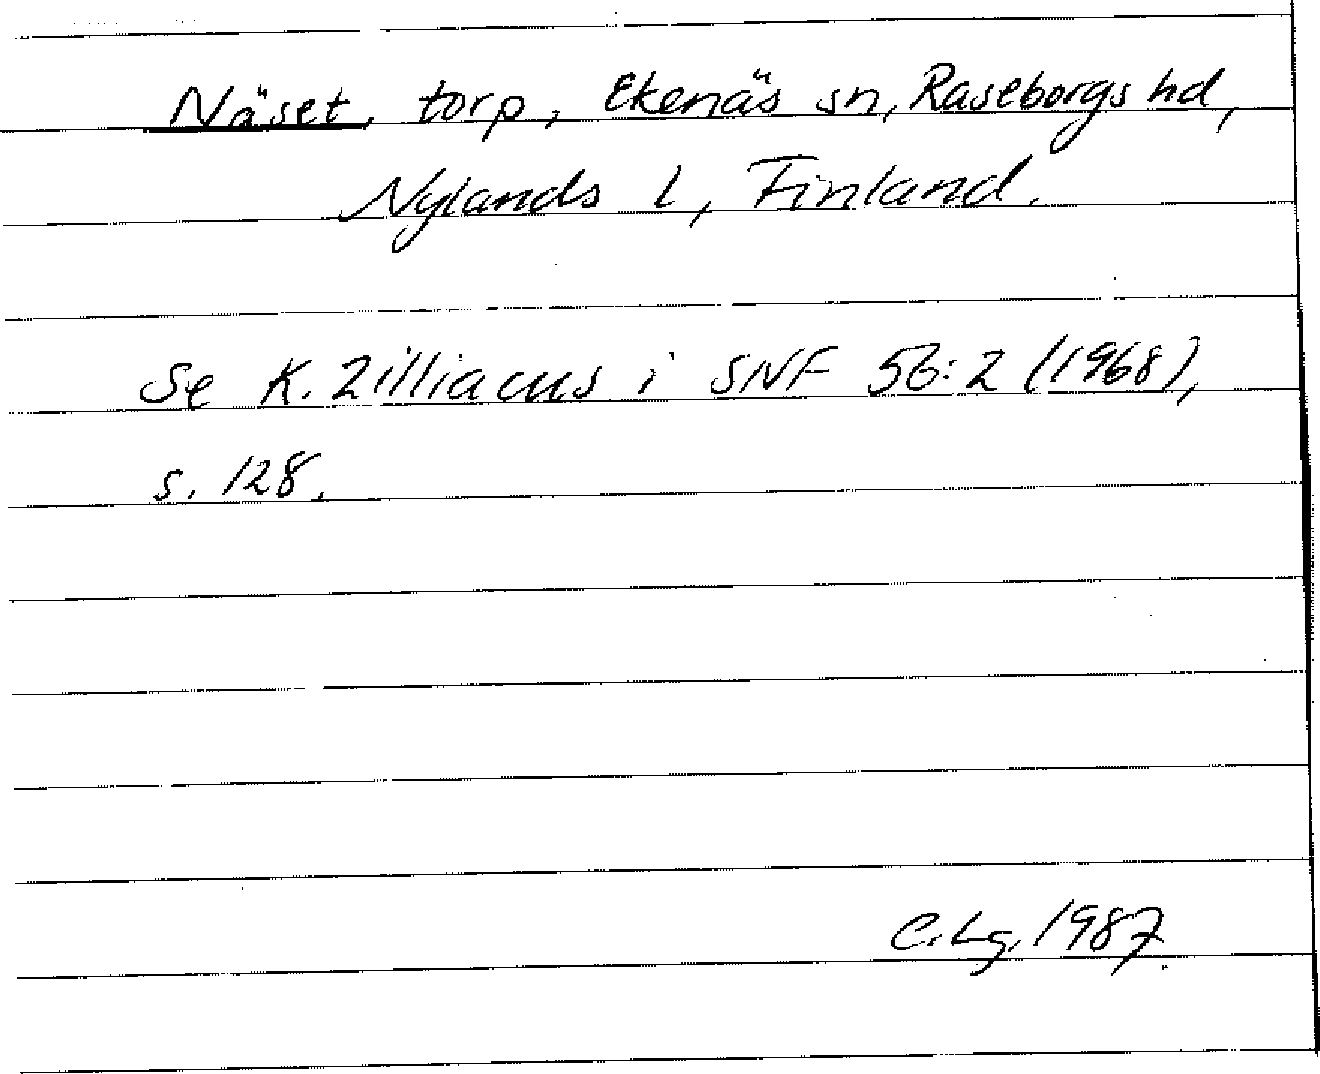 Näset, torp, Ekenäs sn, Raseborgs hd,
Nylands l, Finland.
Se K. Zilliacus i SNF 56:2 (1968),
s. 128.
C.Lg. 1987.